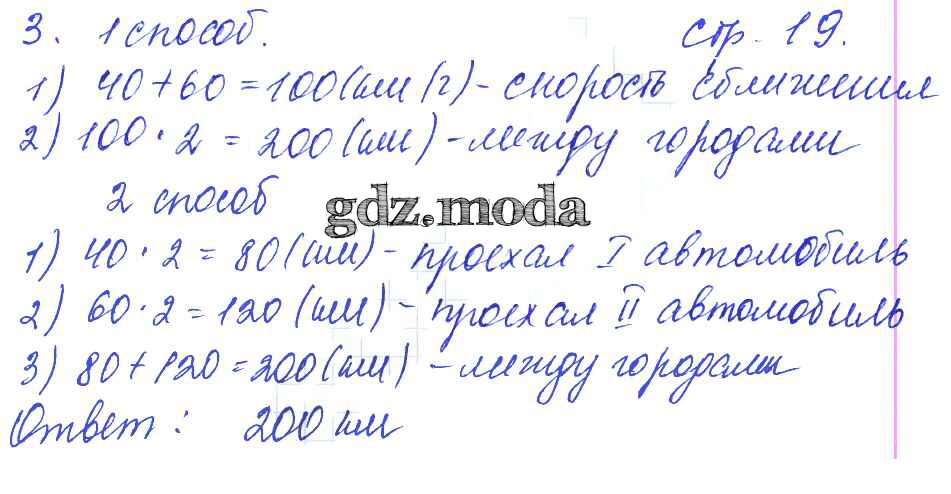 3. 1 способ. стр. 19.
1) 40 + 60 = 100 (км/г) - скорость сближения
2) 100 · 2 = 200 (км) - между городами
2 способ
gdz.moda
1) 40 · 2 = 80 (км) - проехал I автомобиль
2) 60 · 2 = 120 (км) - проехал II автомобиль
3) 80 + 120 = 200 (км) - между городами
Ответ: 200 км